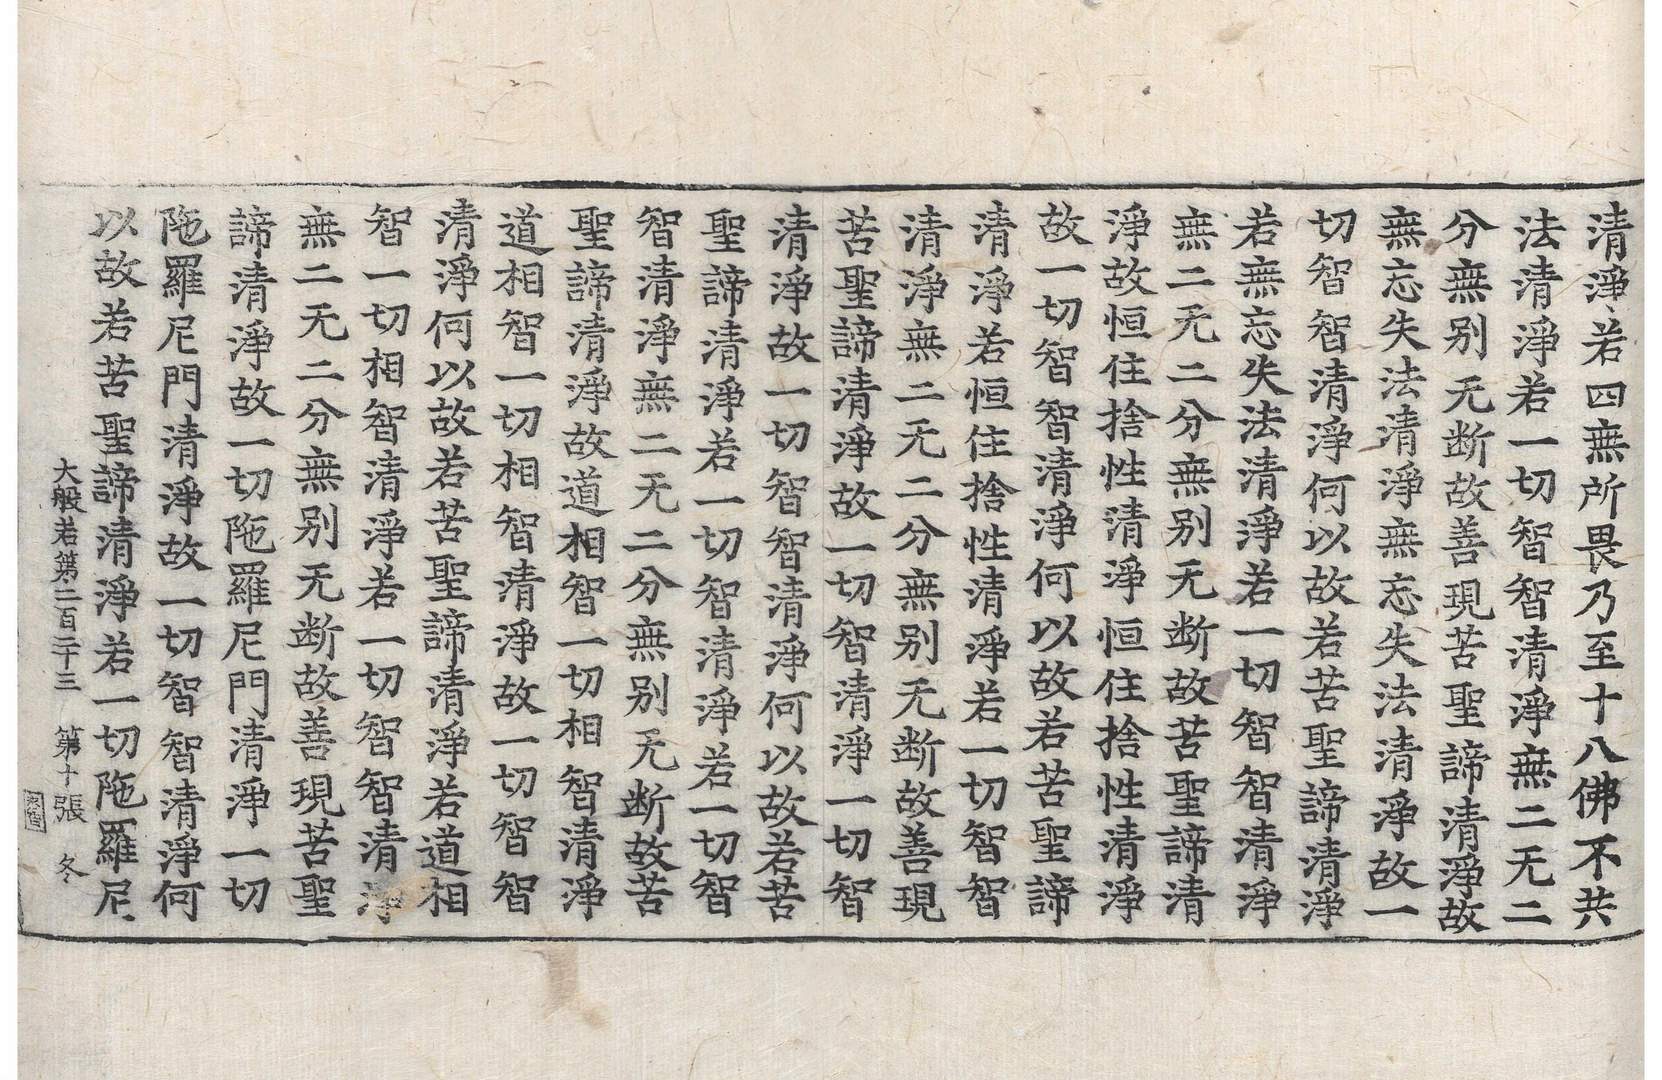 清淨若四無所畏乃至十八佛不共
法清淨若一切智智清淨無二无二
分無别无断故善現苦聖諦清淨故
無忘失法清淨無忘失法清淨故一
切智智清淨何以故若苦聖諦清淨
若無忘失法清淨若一切智智清淨
無二无二分無别无断故苦聖諦清
淨故恒住捨性清淨恒住捨性清淨
故一切智智清淨何以故若苦聖諦
清淨若恒住捨性清淨若一切智智
清淨無二无二分無别无断故善現
苦聖諦清淨故一切智清淨一切智
清淨故一切智智清淨何以故若苦
聖諦清淨若一切智清淨若一切智
智清淨無二无二分無别无断故苦
聖諦清淨故道相智一切相智清淨
道相智一切相智清淨故一切智智
清淨何以故若苦聖諦清淨若道相
智一切相智清淨若一切智智清淨
無二无二分無别无断故善現苦聖
諦清淨故一切陁羅尼門清淨一切
陁羅尼門清淨故一切智智清淨何
以故若苦聖諦清淨若一切陁羅尼
大般若第二百二十三 第十張 冬